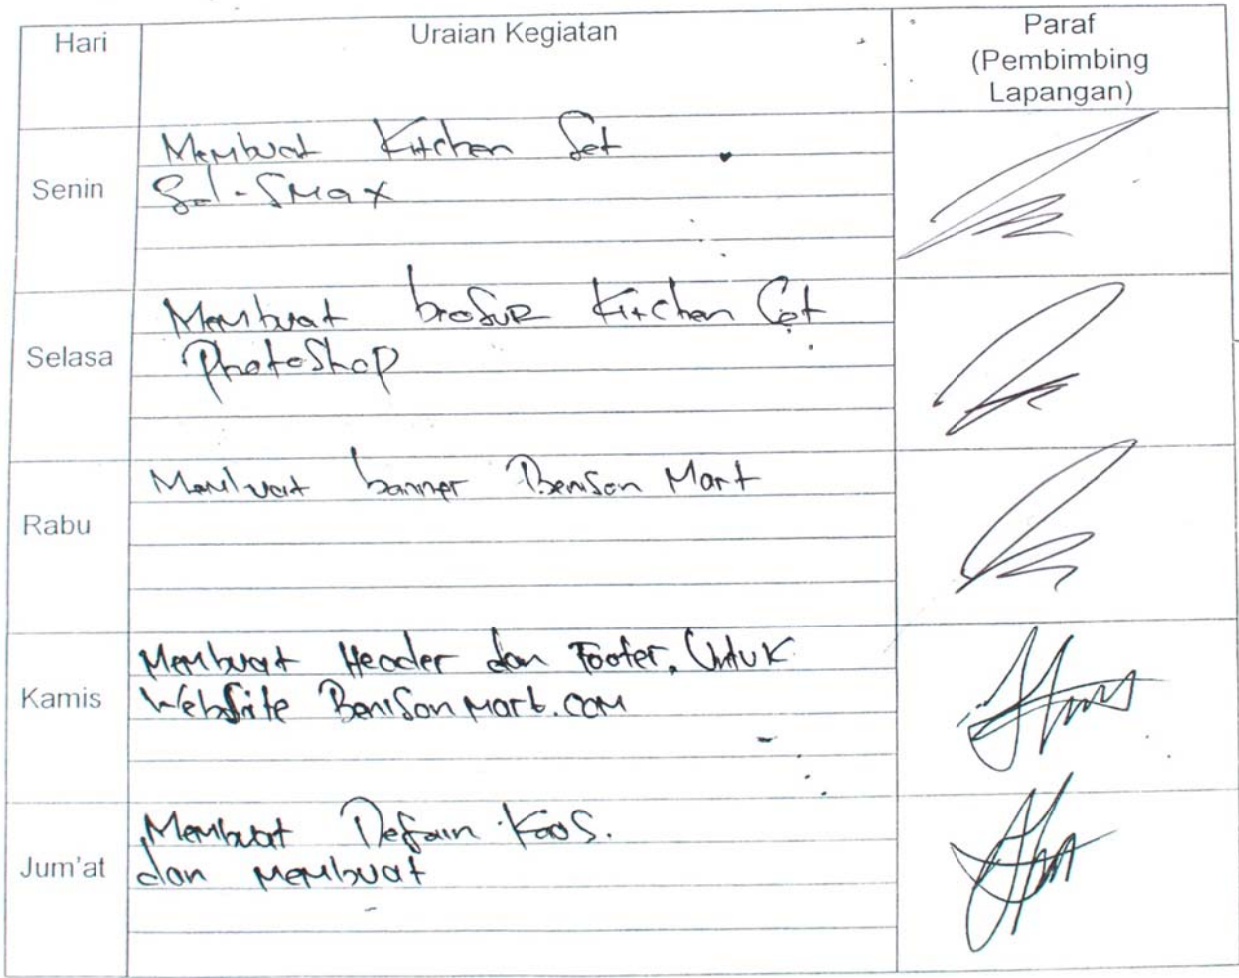 Hari
Uraian Kegiatan
Paraf
(Pembimbing
Lapangan)
Senin
Membuat Kitchen Set
Selasa
Membuat brosur Kitchen Set
PhotoShop
Rabu
Membuat banner Benison Mart
Kamis
Membuat Header dan Footer. Untuk
Website Benisonmart.com
Jum'at
Membuat Desain Kaos.
dan membuat